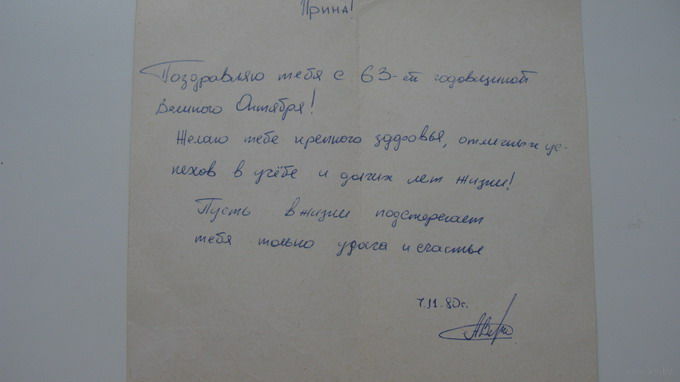 Ирина!
Поздравляю тебя с 63-ей годовщиной
Великого Октября!
Желаю тебе крепного здоровья, отличных ус-
пехов в учёбе и долгих лет жизни!
Пусть в жизни подстерегает
тебя только удача и счастье
7.11.80г.